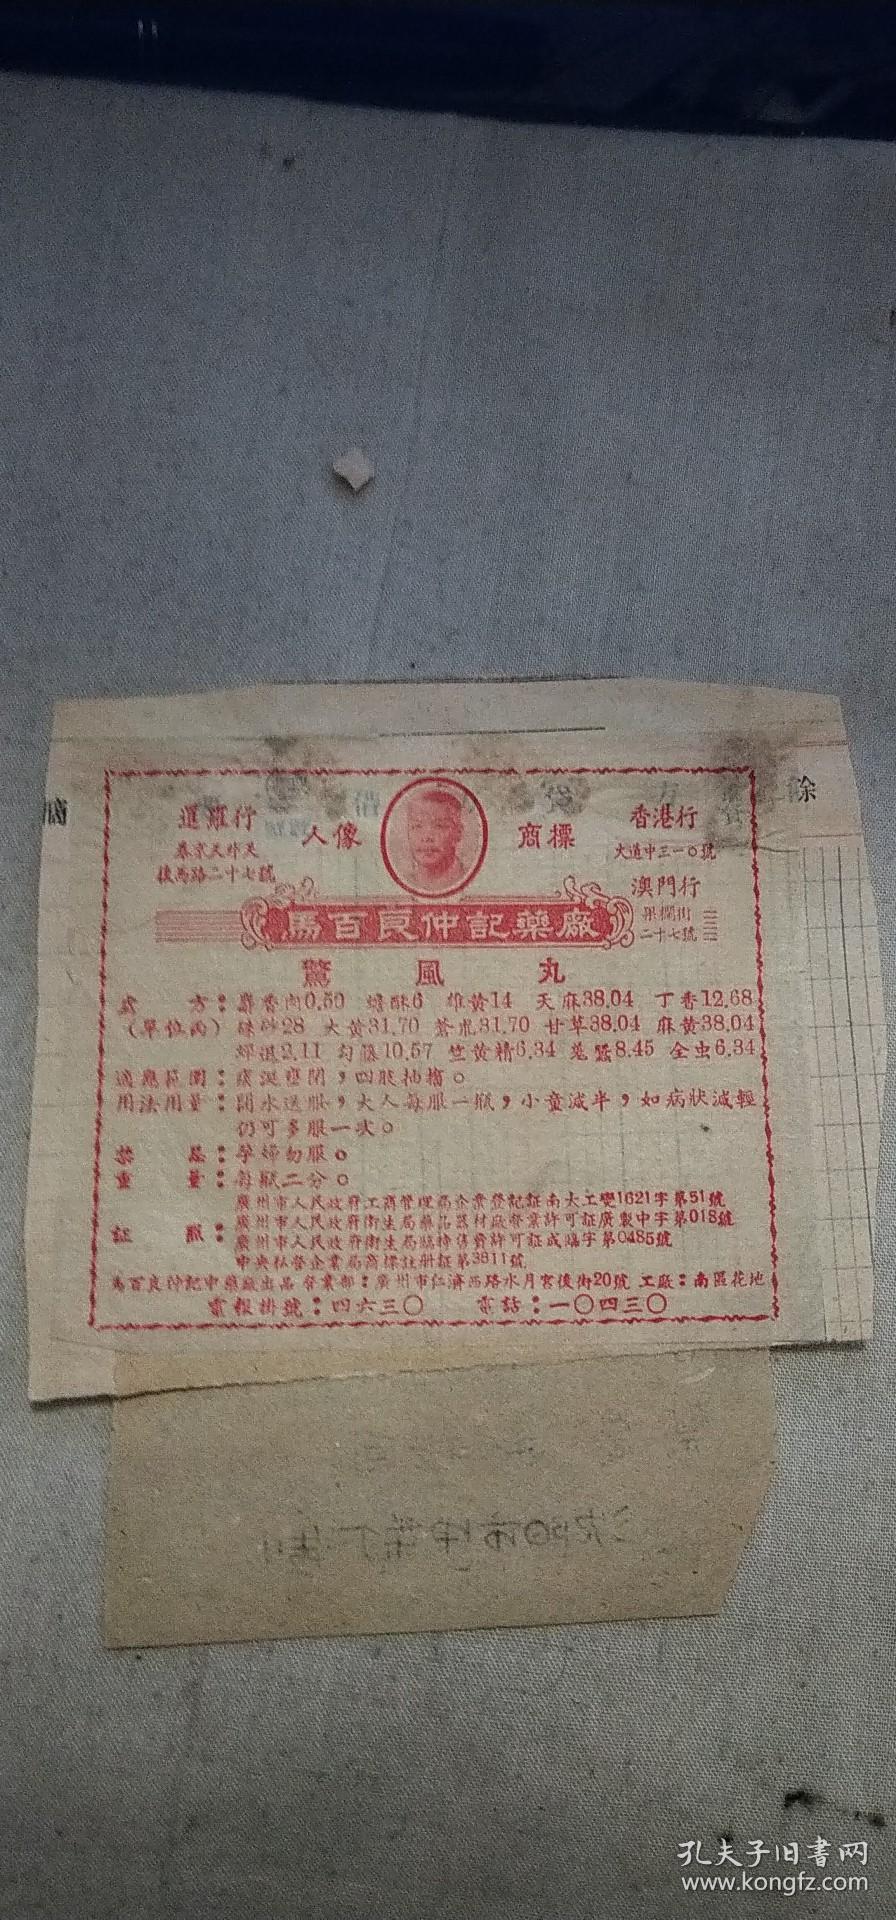 暹羅行
泰京天外天
後馬路二十七號
人像
商標
香港行
大道中三一〇號
澳門行
果欄街
二十七號
馬百良仲記藥廠
驚風丸
處方：麝香肉0.50 蟾酥6 雄黃14 天麻38.04 丁香12.68
（單位兩）硃砂28 大黃31.70 蒼朮31.70 甘草38.04 麻黃38.04
2.11 勾藤10.57 竺黃精6.34 姜蠶8.45 全虫6.34
適應範圍：痰涎壅閉，四肢抽搐。
用法用量：開水送服，大人每服一瓶，小童減半，如病狀減輕
仍可多服一次。
禁忌：孕婦勿服。
重量：每瓶二分。
證照：
廣州市人民政府工商管理局企業登記証南大工變1621字第51號
廣州市人民政府衛生局藥品器材廠營業許可証廣製中字第018號
廣州市人民政府衛生局臨時售賣許可証成臨字第0485號
中央私營企業局商標註册証第3811號
馬百良仲記中藥廠出品 營業部：廣州市仁濟西路水月宮後街20號 工廠：南區花地
電報掛號：四六三〇 電話：一〇四三〇
餘
孔夫子旧書网
www.kongfz.com